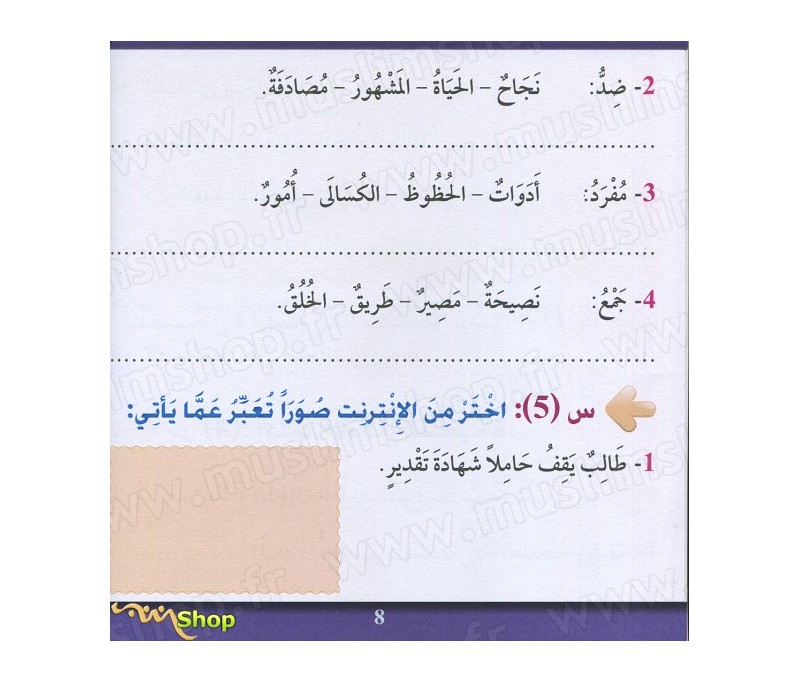 2- ضِدُّ: نَجَاحٌ - الحَيَاةُ - المَشْهُورُ - مُصَادَفَةٌ.
3- مُفْرَدُ: أَدَوَاتٌ - الحُظُوظُ - الكُسَالَى - أُمُورٌ.
4- جَمْعُ: نَصِيحَةٌ - مَصِيرٌ - طَرِيقٌ - الخُلُقُ.
س (5): اخْتَرْ مِنَ الإِنْتِرنِت صُوَرَاً تُعَبِّرُ عَمَّا يَأتِي:
1- طَالِبٌ يَقِفُ حَامِلاً شَهَادَةَ تَقْدِيرٍ.
8
Shop
www.muslimshop.fr